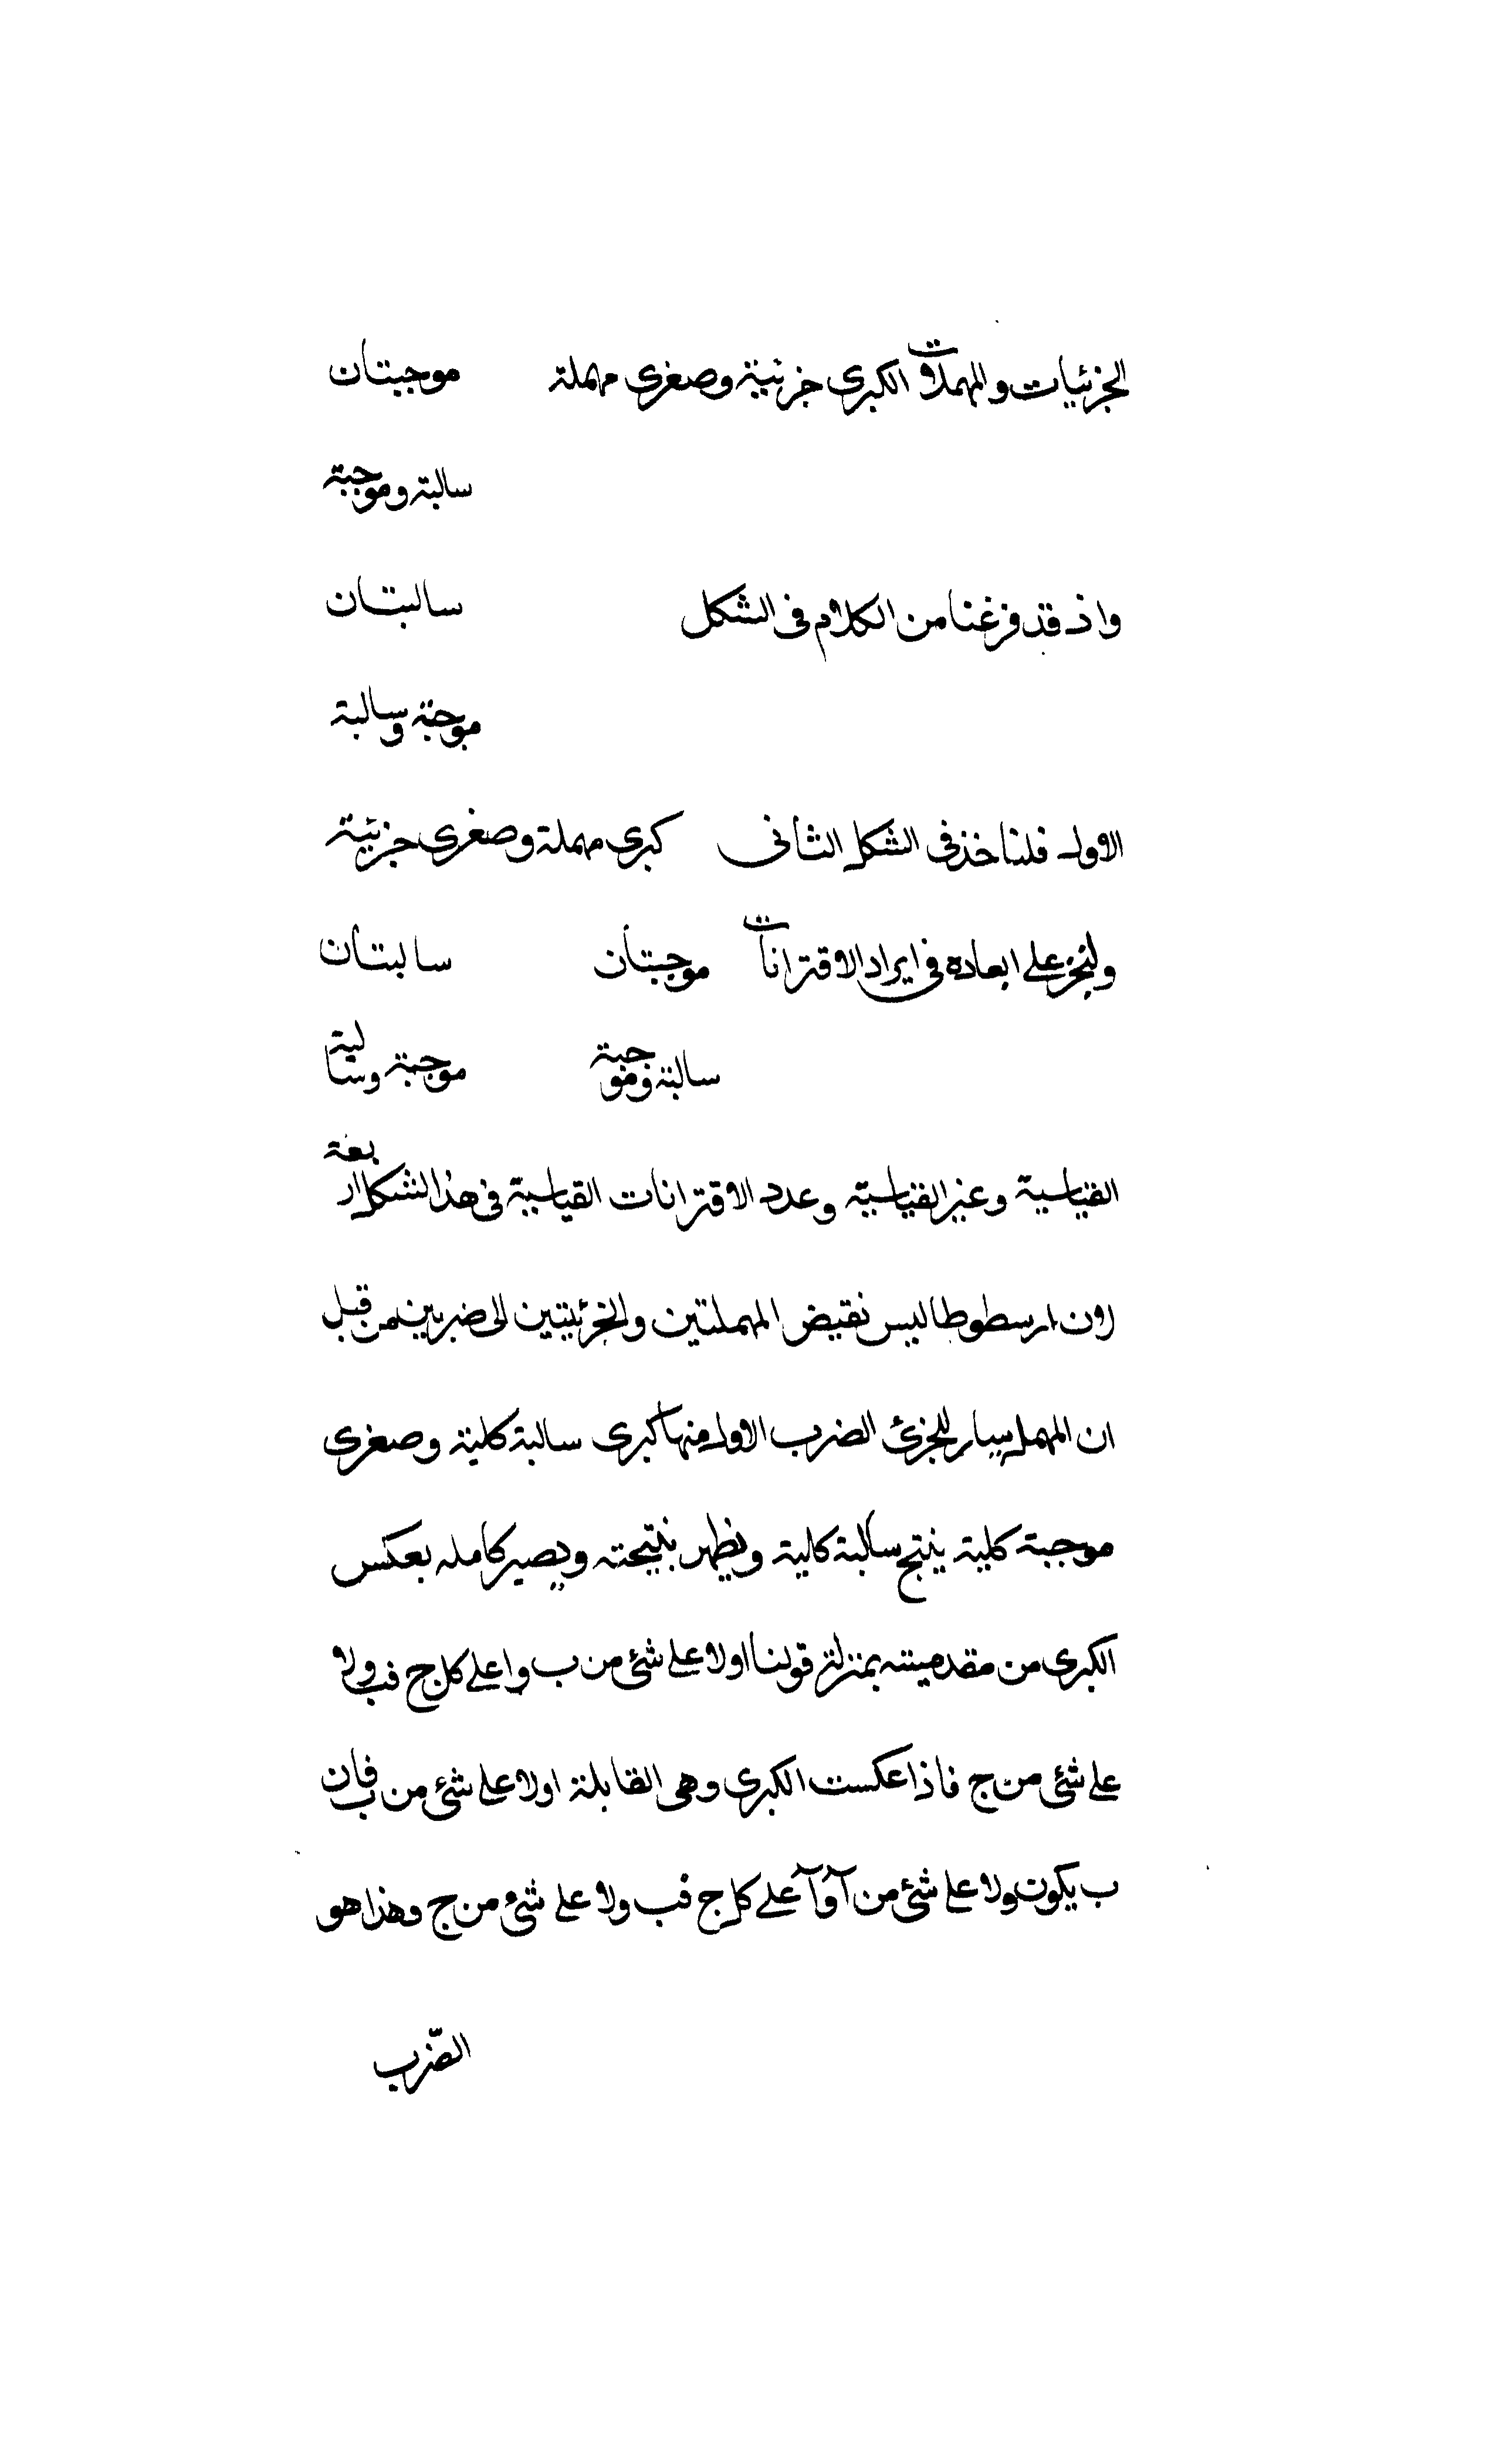 الجزئيات والمهملات الكبرى جزئية وصغرى مهملة موجبتان
سالبة وموجبة
واذ قد فرغنا من الكلام فى الشكل سالبتان
موجبة وسالبة
الاول فلناخذ فى الشكل الثانى كبرى مهملة وصغرى جزئية
ولنجز على ابعاده فى ايراد الاقترانات موجبتان سالبتان
سالبة وموجبة موجبة وسالبة
القياسية وغير القياسية وعدد الاقترانات القياسية فى هذا الشكل اربعة
لان ارسطوطاليس نقيض المهملتين والجزئيتين الى ضربين من قبل
ان المهمل للجزئ الضرب الاول منها كبرى سالبة كلية وصغرى
موجبة كلية ينتج سالبة كلية ويظهر بنتيحته ويصير كامله بعكس
الكبرى من مقدميته بمنزلة قولنا اولا على شئ من ب وا على كل ج فب ولا
على شئ من ج فاذا عكست الكبرى وهى القابلة اولا على شئ من ب فان
ب يكون ولا على شئ من آ وآ على كل ج فب ولا على شئ من ج وهذا هو
الضرب